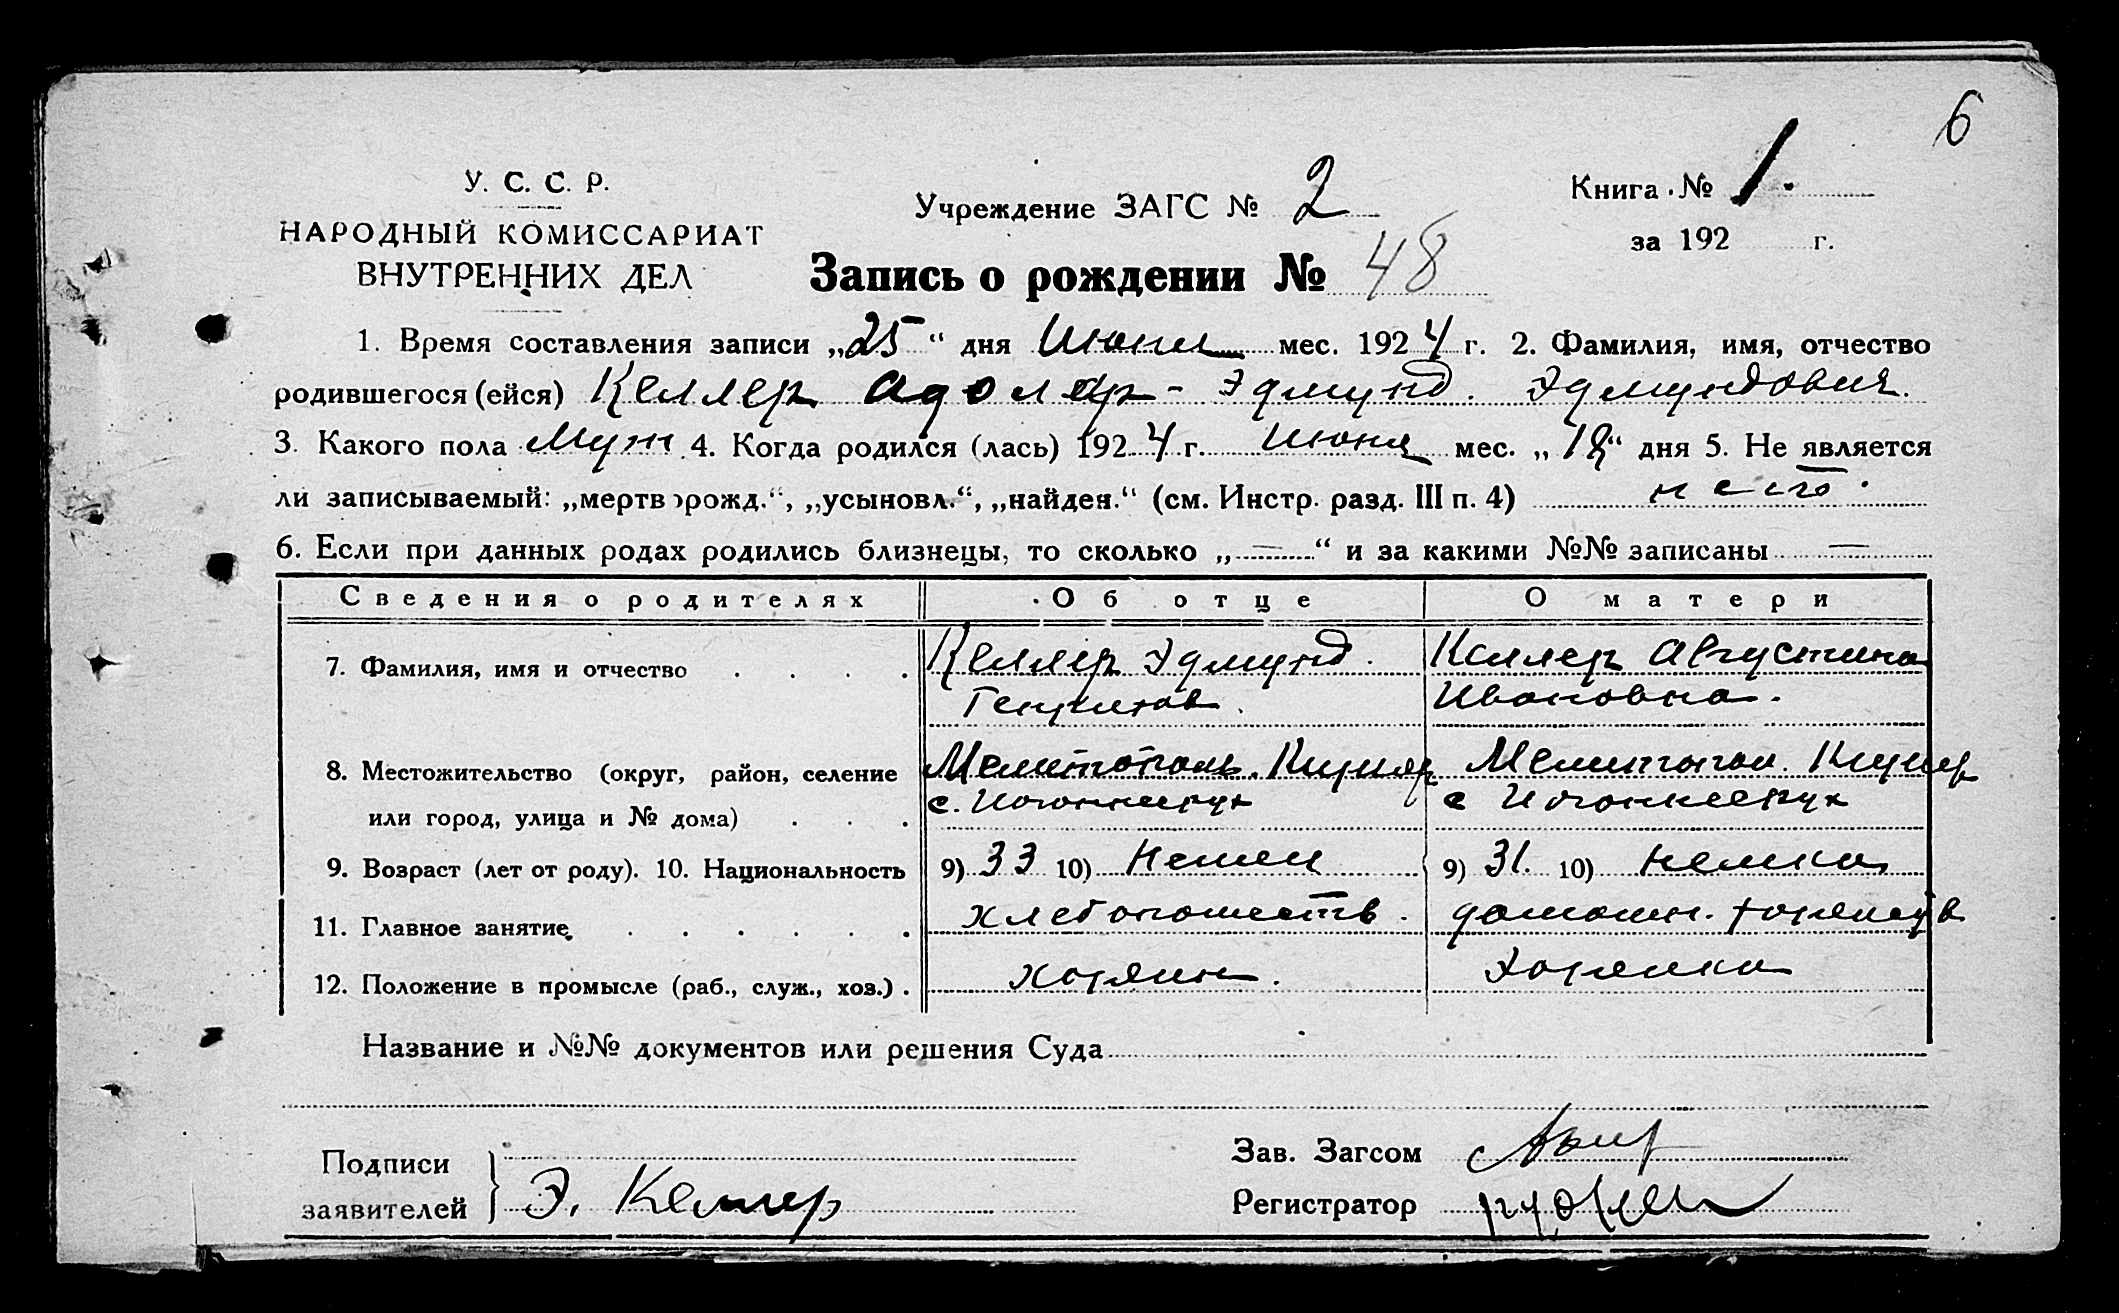 6
У. С. С. Р.
НАРОДНЫЙ КОМИССАРИАТ
ВНУТРЕННИХ ДЕЛ
Учреждение ЗАГС № 2
Книга № 1.
за 192 г.
Запись о рождении № 48
1. Время составления записи „25“ дня Июня мес. 1924 г. 2. Фамилия, имя, отчество
родившегося (ейся) Келлер Адольф-Эдмунд. Эдмундович.
3. Какого пола Муж 4. Когда родился (лась) 1924 г. Июня мес. „18“ дня 5. Не является
ли записываемый: „мерткорожд.“, „усыновл.“, „найден.“ (см. Инстр. разд. III п. 4) нет.
6. Если при данных родах родились близнецы, то сколько „—“ и за какими №№ записаны —
Сведения о родителях Об отце О матери
7. Фамилия, имя и отчество Келлер Эдмунд. Келлер Августина
Ивановна.
8. Местожительство (округ, район, селение Мелитополь. Мелитопол.
или город, улица и № дома) с. с
9. Возраст (лет от роду). 10. Национальность 9) 33 10) Немец 9) 31. 10) Немка
11. Главное занятие хлебопашеств. домашн.
12. Положение в промысле (раб., служ., хоз.) хозяин. хозяйка
Название и №№ документов или решения Суда
Подписи
заявителей Э. Келлер
Зав. Загсом
Регистратор